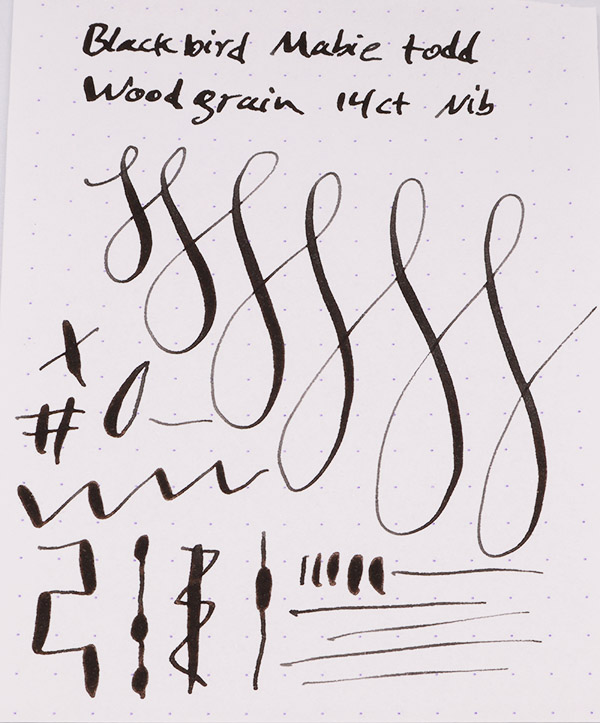 Blackbird Mabie todd
Woodgrain 14ct Nib